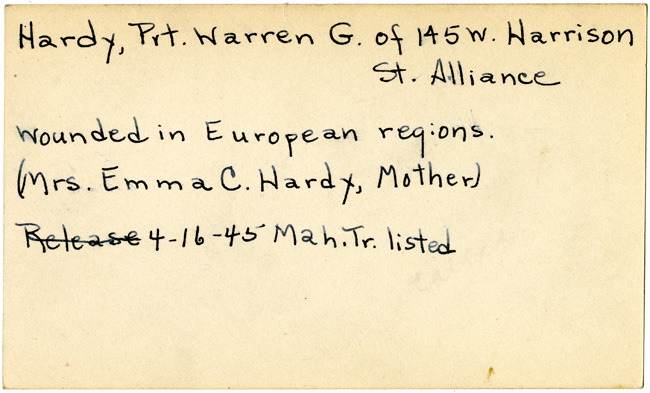 Hardy, Prt. Warren G. of 145 W. Harrison
St. Alliance
wounded in European regions.
(Mrs. Emma C. Hardy, Mother)
Release 4-16-45 Mah. Tr. listed